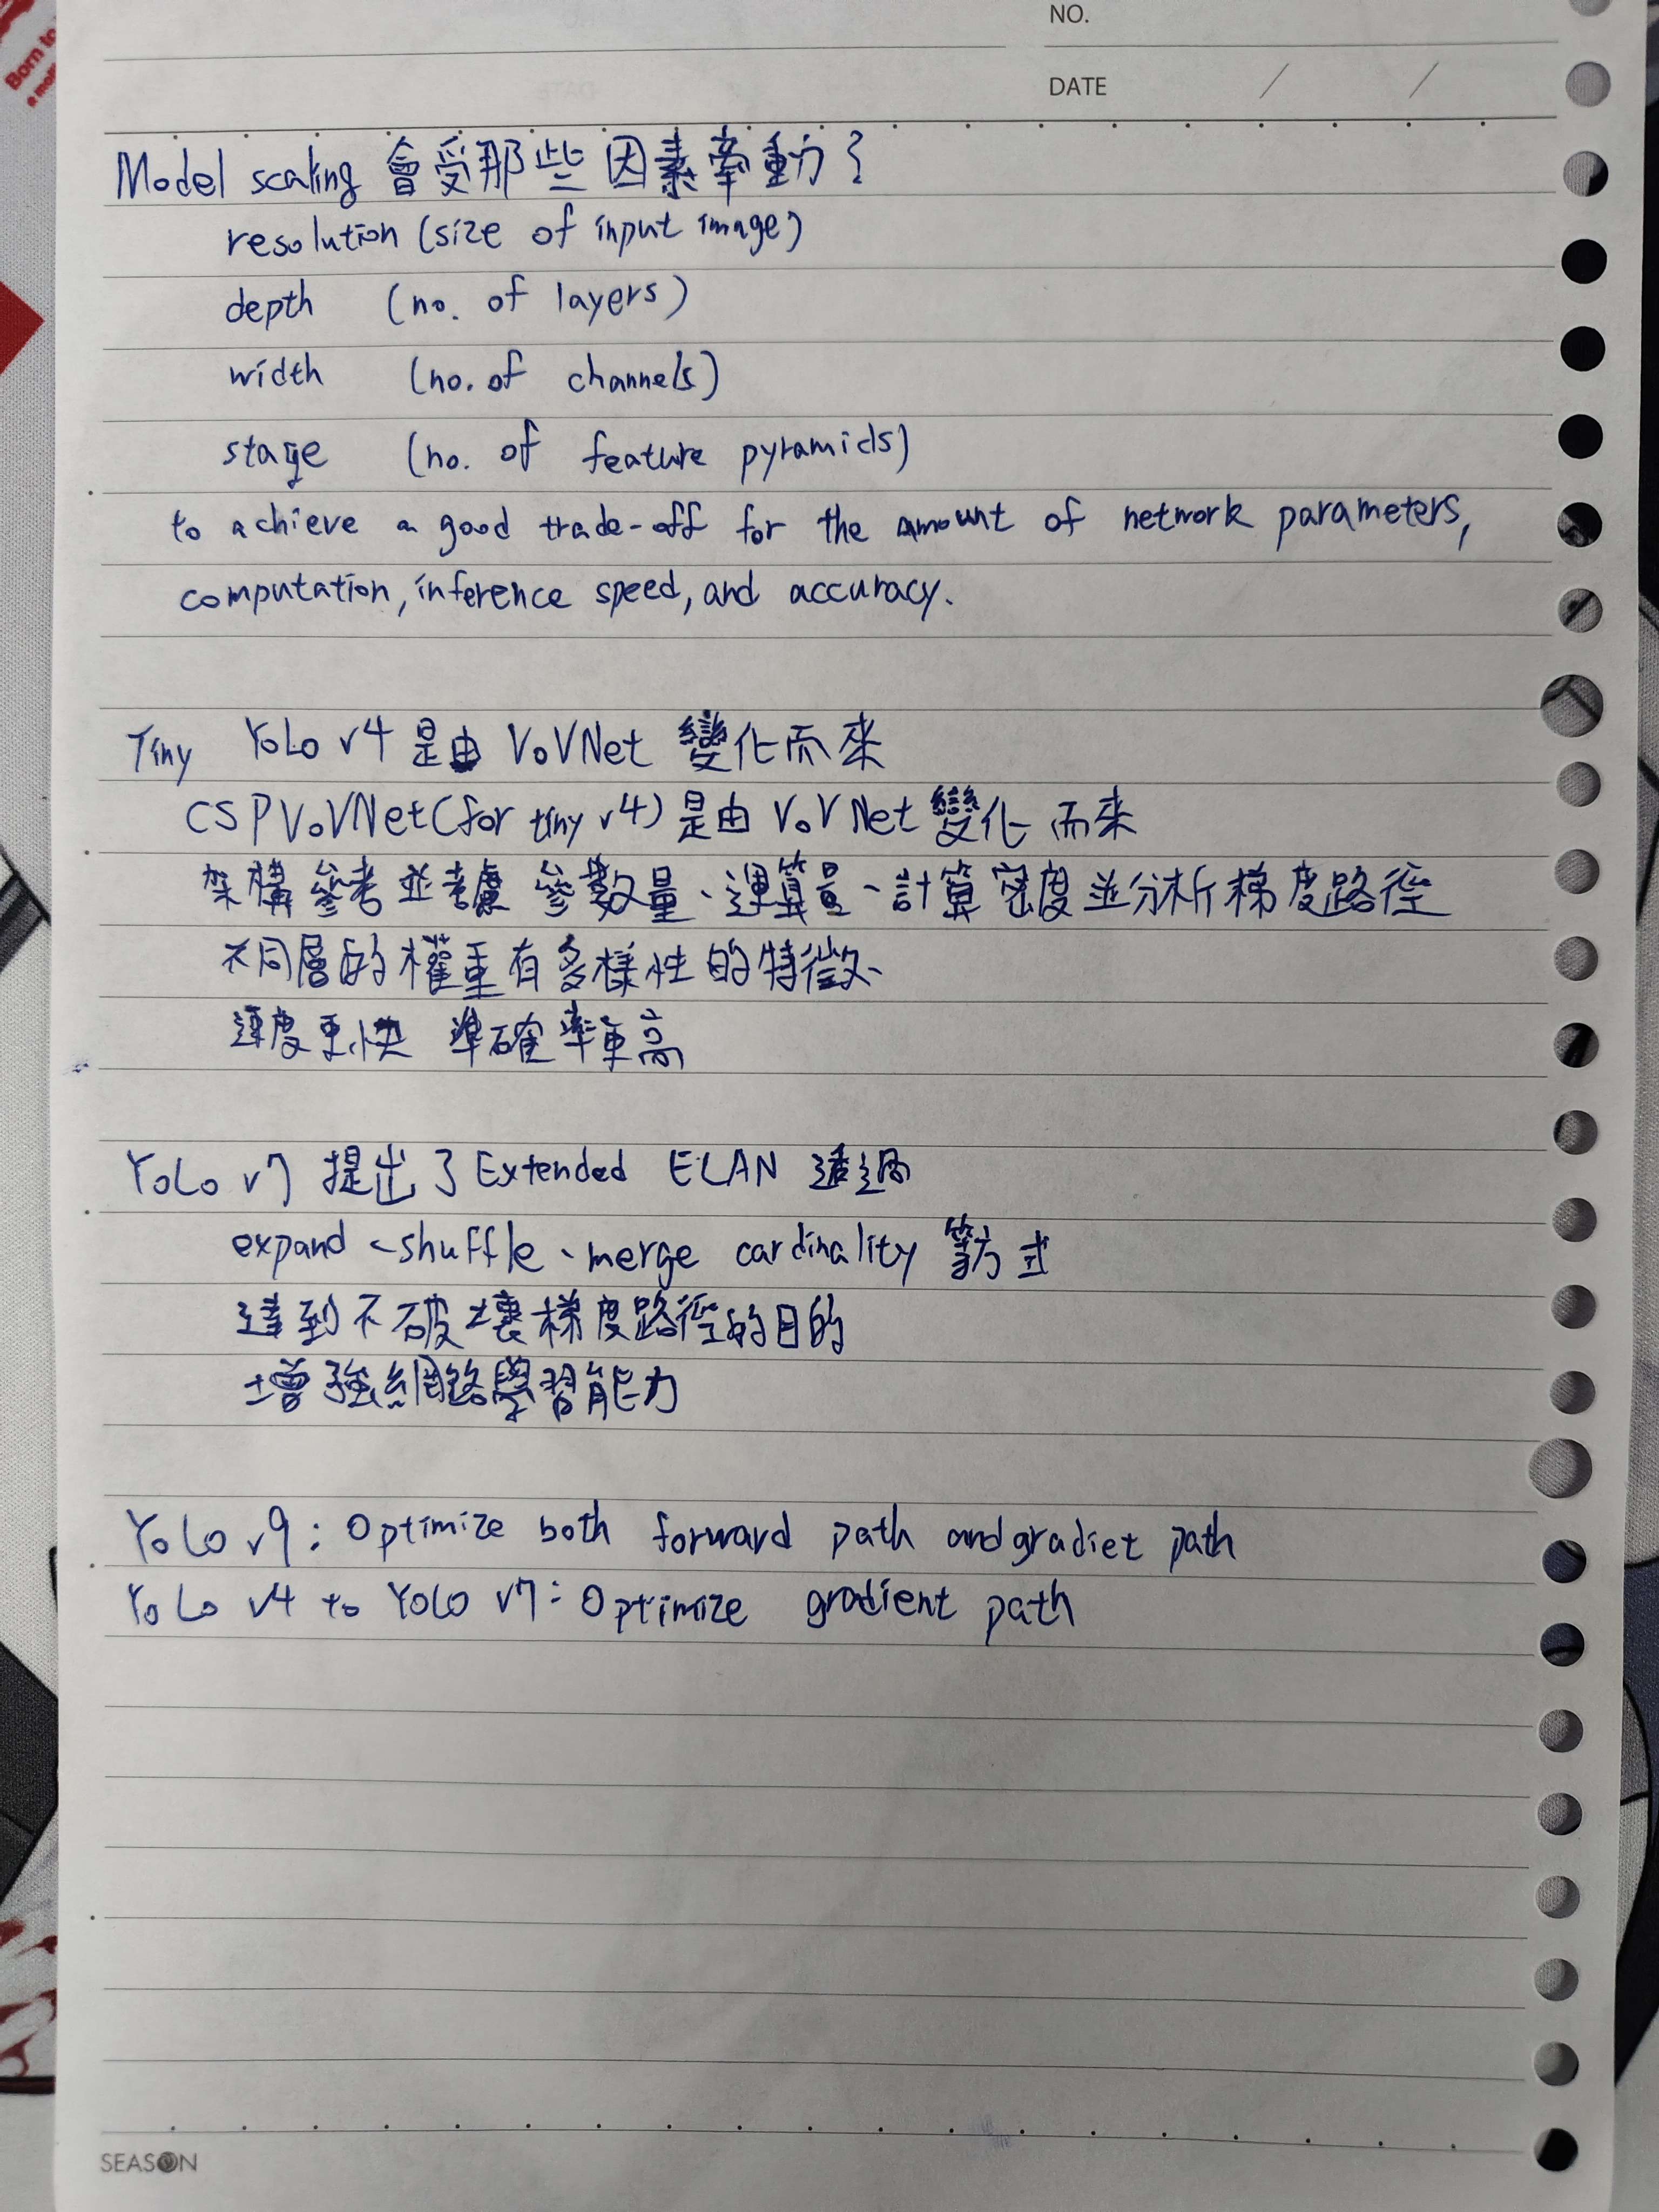 Born to
NO.
DATE / /
Model scaling 會受那些因素牽動?
resolution (size of input image)
depth (no. of layers)
width (no. of channels)
stage (no. of feature pyramids)
to achieve a good trade-off for the amount of network parameters,
computation, inference speed, and accuracy.
Tiny YoLo v4 是由 VoVNet 變化而來
CSPVoVNet(for tiny v4) 是由 VoVNet 變化而來
架構參考並考慮 參數量、運算量、計算密度並分析梯度路徑
不同層的權重有多樣性的特徵、
速度更快 準確率更高
YoLo v7 提出了 Extended ELAN 透過
expand、shuffle、merge cardinality 等方式
達到不破壞梯度路徑的目的
增強網路學習能力
YoLo v9: Optimize both forward path and gradiet path
YoLo v4 to YoLo v7: Optimize gradient path
SEASON